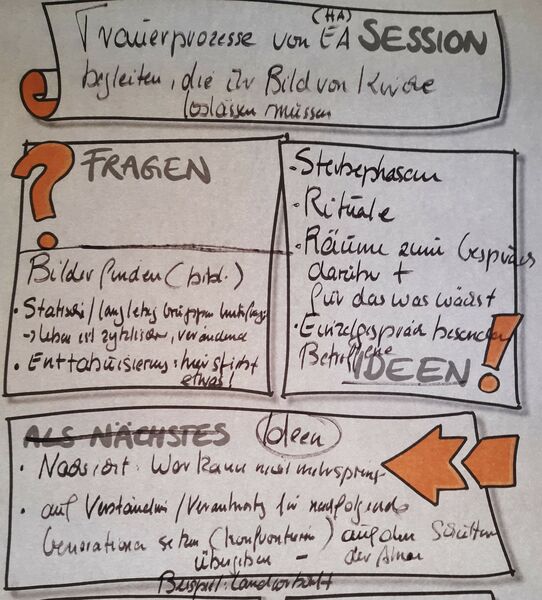 (HA)
Trauerprozesse von EA SESSION
begleiten, die ihr Bild von Kirche
loslassen müssen
? FRAGEN
Bilder finden (bibl.)
• Statisch / langlebig
→ leben ist zyklisch, verändernd
• Enttabuisierung: hier stirbt
etwas!
• Sterbephasen
• Rituale
• Räume zum Gespräch
darüber +
für das was wächst
• Einzelgespräch besonders
Betroffene
IDEEN !
ALS NÄCHSTES Ideen
• Wer kann nicht mehr
• auf Verständnis / Verantwortg für nachfolgende
Generationen setzen ( ) auf den Schultern
übergeben – der Ahnen
Beispiel: Landwirtschaft